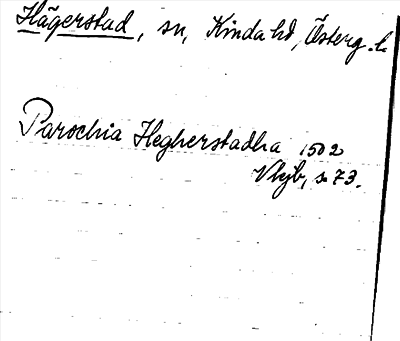 Hägerstad, sn, Kinda hd, Österg. l.
Parochia Hegherstadha 1502
Vkjb, s. 73.